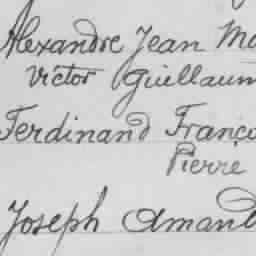 Alexandre Jean Ma
Victor Guillaum
Ferdinand Franço
Pierre
Joseph Amand